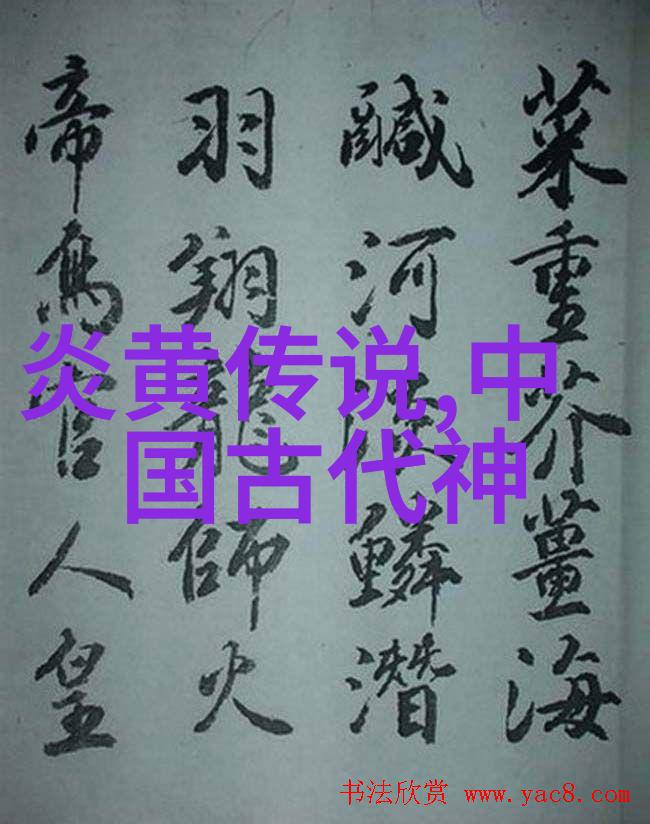 菜重芥薑海
鹹河淡鱗潛
羽翔龍師火
帝鳥官人皇
炎黄传说,中
国古代神
书法欣赏 www.yac8.com